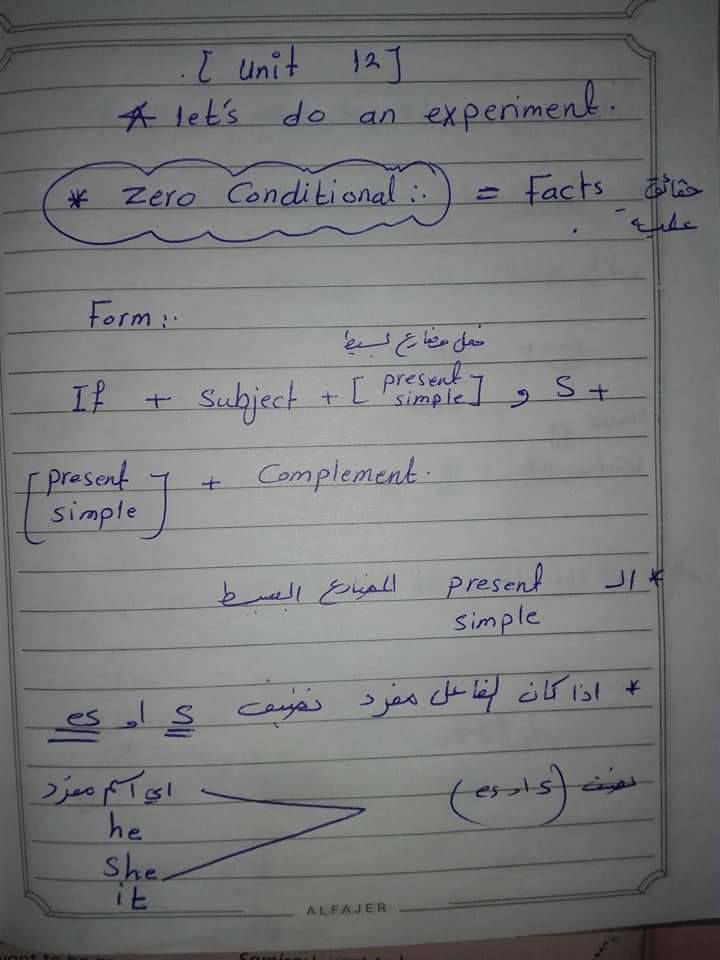 [ Unit 12 ]
* let's do an experiment.
* Zero Conditional :. = Facts حقائق
علمية
Form :.
فعل مضارع بسيط
If + Subject + [ present simple ] , S +
[ present simple ] + Complement.
* الـ present simple المضارع البسيط
* اذا كان الفاعل مفرد نضيف S او es
اي اسم مفرد نضيف (S او es)
he
She
it
ALFAJER
want to be